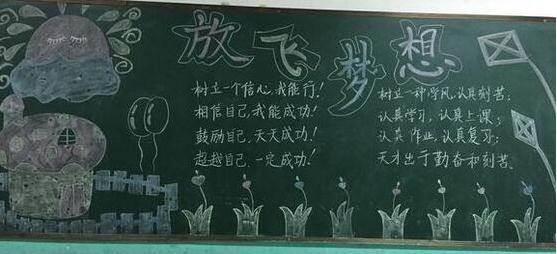 放飞梦想
树立一个信心,我能行!
相信自己,我能成功!
鼓励自己,天天成功!
超越自己,一定成功!
树立一种学风,认真刻苦;
认真学习,认真上课;
认真作业,认真复习;
天才出于勤奋和刻苦。